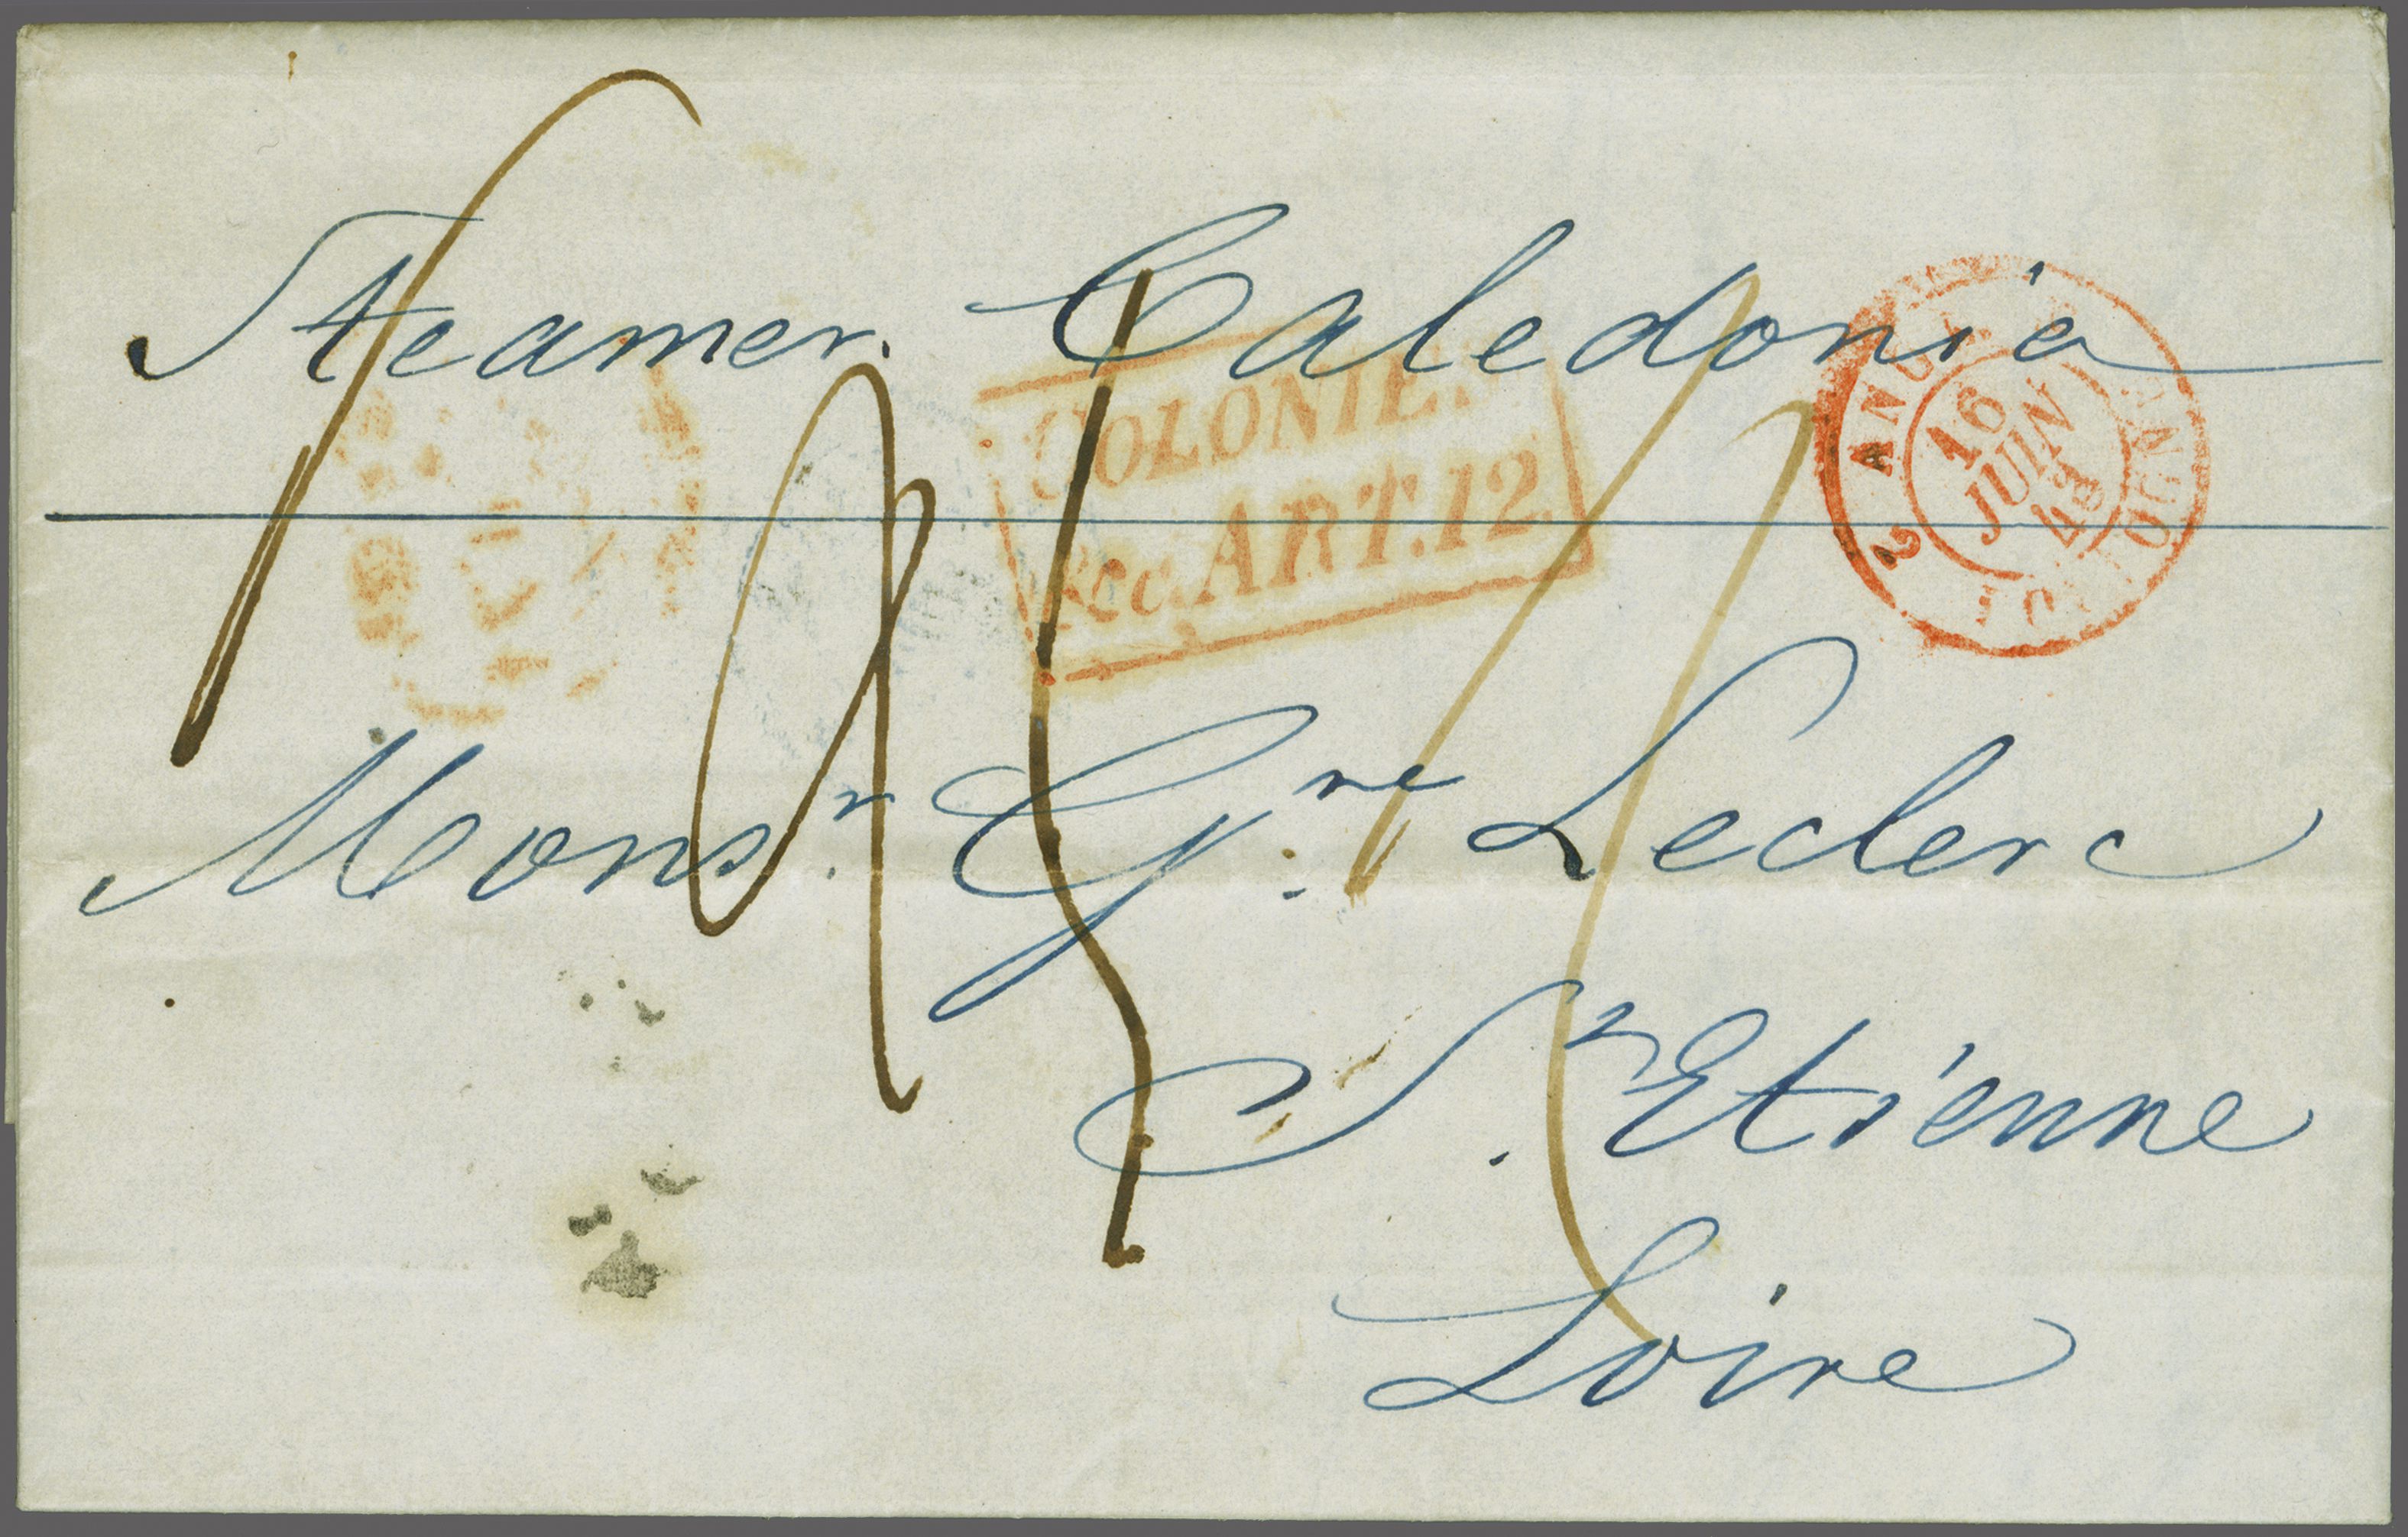 Steamer. Caledonia
COLONIES
&c. ART. 12
2 ANGL. BOULOGNE 2
16
JUIN
48
Monsr. Gre. Leclerc
St. Etienne
Loire